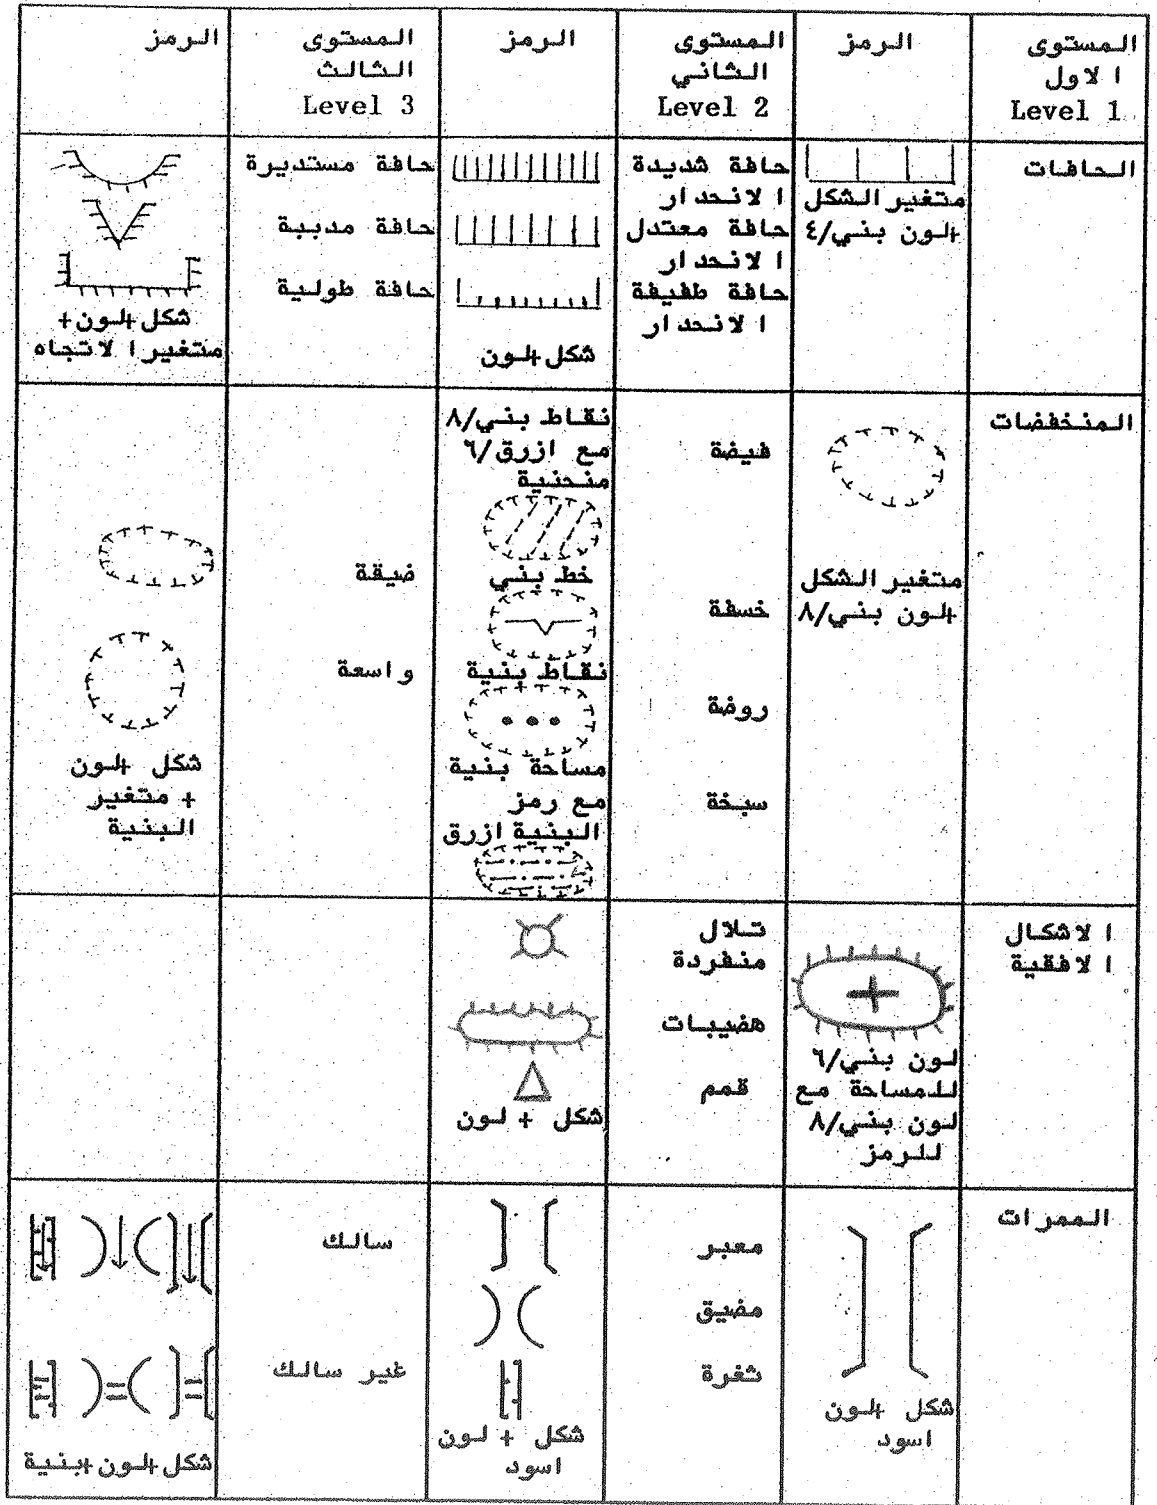 المستوى
الاول
Level 1
الرمز
المستوى
الثاني
Level 2
الرمز
المستوى
الثالث
Level 3
الرمز
الحافات
متغير الشكل
+لون بني/٤
حافة شديدة
الانحدار
حافة معتدل
الانحدار
حافة طفيفة
الانحدار
شكل+لون
حافة مستديرة
حافة مدببة
حافة طولية
شكل+لون+
متغير الاتجاه
المنخفضات
متغير الشكل
+لون بني/٨
فيضة
خسفة
روضة
سبخة
نقاط بني/٨
مع ازرق/٦
منحنية
خط بني
نقاط بنية
مساحة بنية
مع رمز
البنية ازرق
ضيقة
واسعة
شكل +لون
+ متغير
البنية
الاشكال
الافقية
لون بني/٦
للمساحة مع
لون بني/٨
للرمز
تلال
منفردة
هضيبات
قمم
شكل + لون
الممرات
شكل +لون
اسود
معبر
مضيق
ثغرة
شكل + لون
اسود
سالك
غير سالك
شكل+لون+بنية